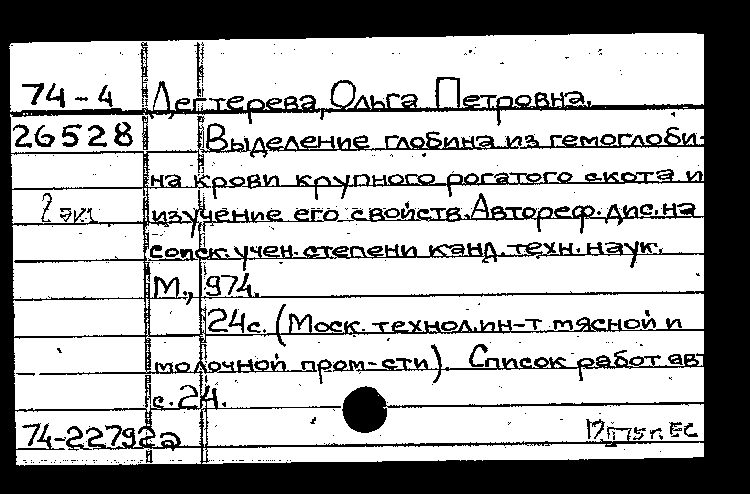 74-4 Дегтерева, Ольга Петровна.
26528 Выделение глобина из гемоглоби-
на крови крупного рогатого скота и
2 экз. изучение его свойств. Автореф. дис. на
соиск. учен. степени канд. техн. наук.
М., 974.
24с. (Моск. технол. ин-т мясной и
молочной пром-сти). Список работ авт
с. 24.
74-22792а 75 г. ЕС